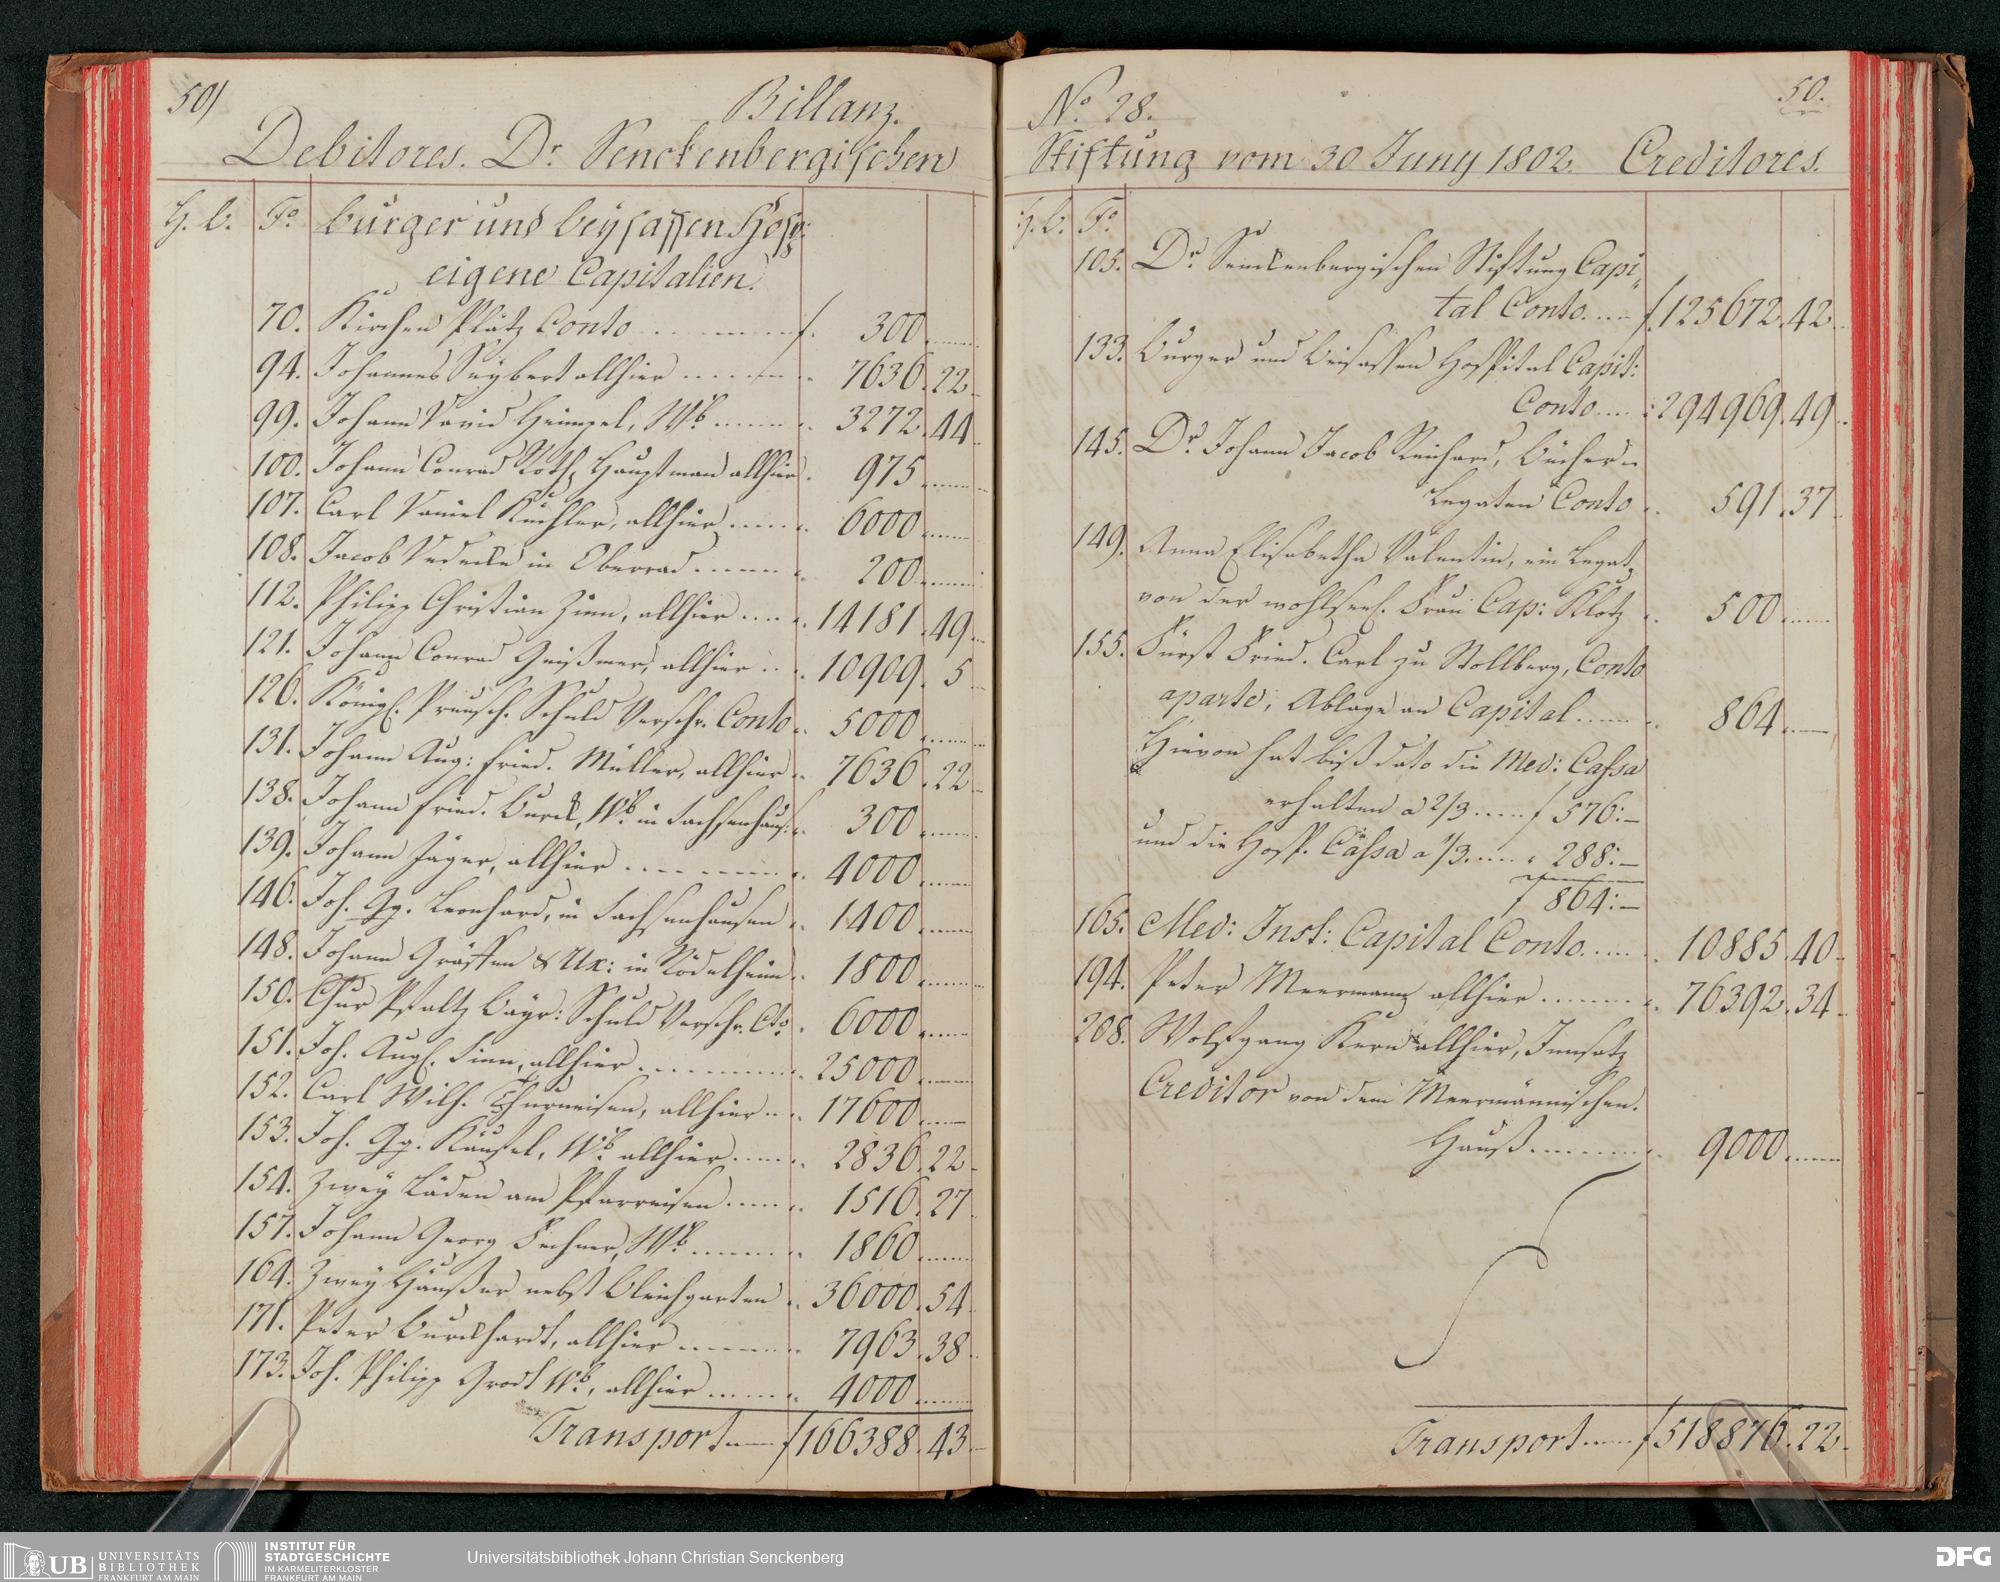 50)
Billanz.
Debitores. Dr. Senckenbergischen
H. b. Fo. burger und beysassen Hosp:
eigene Capitalien.
70. Kirchen Platz Conto f. 300
94. Johannes Seybert allhier 7636. 22
99. Johann David Heimpel, Wb. 3272. 44
100. Johann Conrad Roth, Hauptman allhier 975
107. Carl Daniel Küchler, allhier 6000
108. Jacob in Oberrad 200
112. Philipp Christian Zinn, allhier 14181. 49
121. Johann Conrad Geißmer, allhier 10909. 5
126. Königl. Preusch. Schuld Verschr. Conto 5000
131. Johann Aug: Fried. Müller, allhier 7636. 22
138. Johann Fried. Burck, Wb. in Sachsenhaus: 300
139. Johann Jäger, allhier 4000
146. Joh. Gg. Leonhard, in Sachsenhausen 1400
148. Johann Gräffen & Ux: in Rödelheim 1800
150. Chur Pfaltz Bayr: Schuld Verschr. Cto. 6000
151. Joh. Augl. Finn, allhier 25000
152. Carl Wilh. Thurneisen, allhier 17600
153. Joh. Gg. Käussel, Wb. allhier 2836. 22
154. Zwey Läden am Pfarreisen 1516. 27
157. Johann Georg Fechner, Wb. 1860
164. Zwey Häusser nebst Bleichgarten 36000. 54
171. Peter Burckhardt, allhier 7963. 38
173. Joh. Philipp Grodt Wb., allhier 4000
Transport f 166388. 43
No. 28.
50.
Stiftung vom 30 Juny 1802. Creditores.
H. b: Fo.
105. Dr. Senckenbergischen Stiftung Capi„
tal Conto f. 125672. 42
133. Burger und Beisassen Hospital Capit:
Conto 294969. 49
145. Dr. Johann Jacob Reichard, Bücher
Legaten Conto 591. 37
149. Anna Elisabetha Valentin, ein Legat,
von der wohlseel. Frau Cap: Klotz 500
155. Fürst Fried. Carl zu Stollberg, Conto
aparte, Ablage an Capital 864
Hievon hat biß dato die Med: Cassa
erhalten a 2/3 f 576:—
und die Hosp. Cassa a 1/3 288:—
f 864:—
165. Med: Inst: Capital Conto 10885. 40
194. Peter Meermann allhier 76392. 34
208. Wolfgang Kern allhier, Innsatz
Creditor von dem Meermännischen.
Hauß 9000
Transport f 518876. 22
UB UNIVERSITÄTS
BIBLIOTHEK
FRANKFURT AM MAIN
INSTITUT FÜR
STADTGESCHICHTE
IM KARMELITERKLOSTER
FRANKFURT AM MAIN
Universitätsbibliothek Johann Christian Senckenberg
DFG